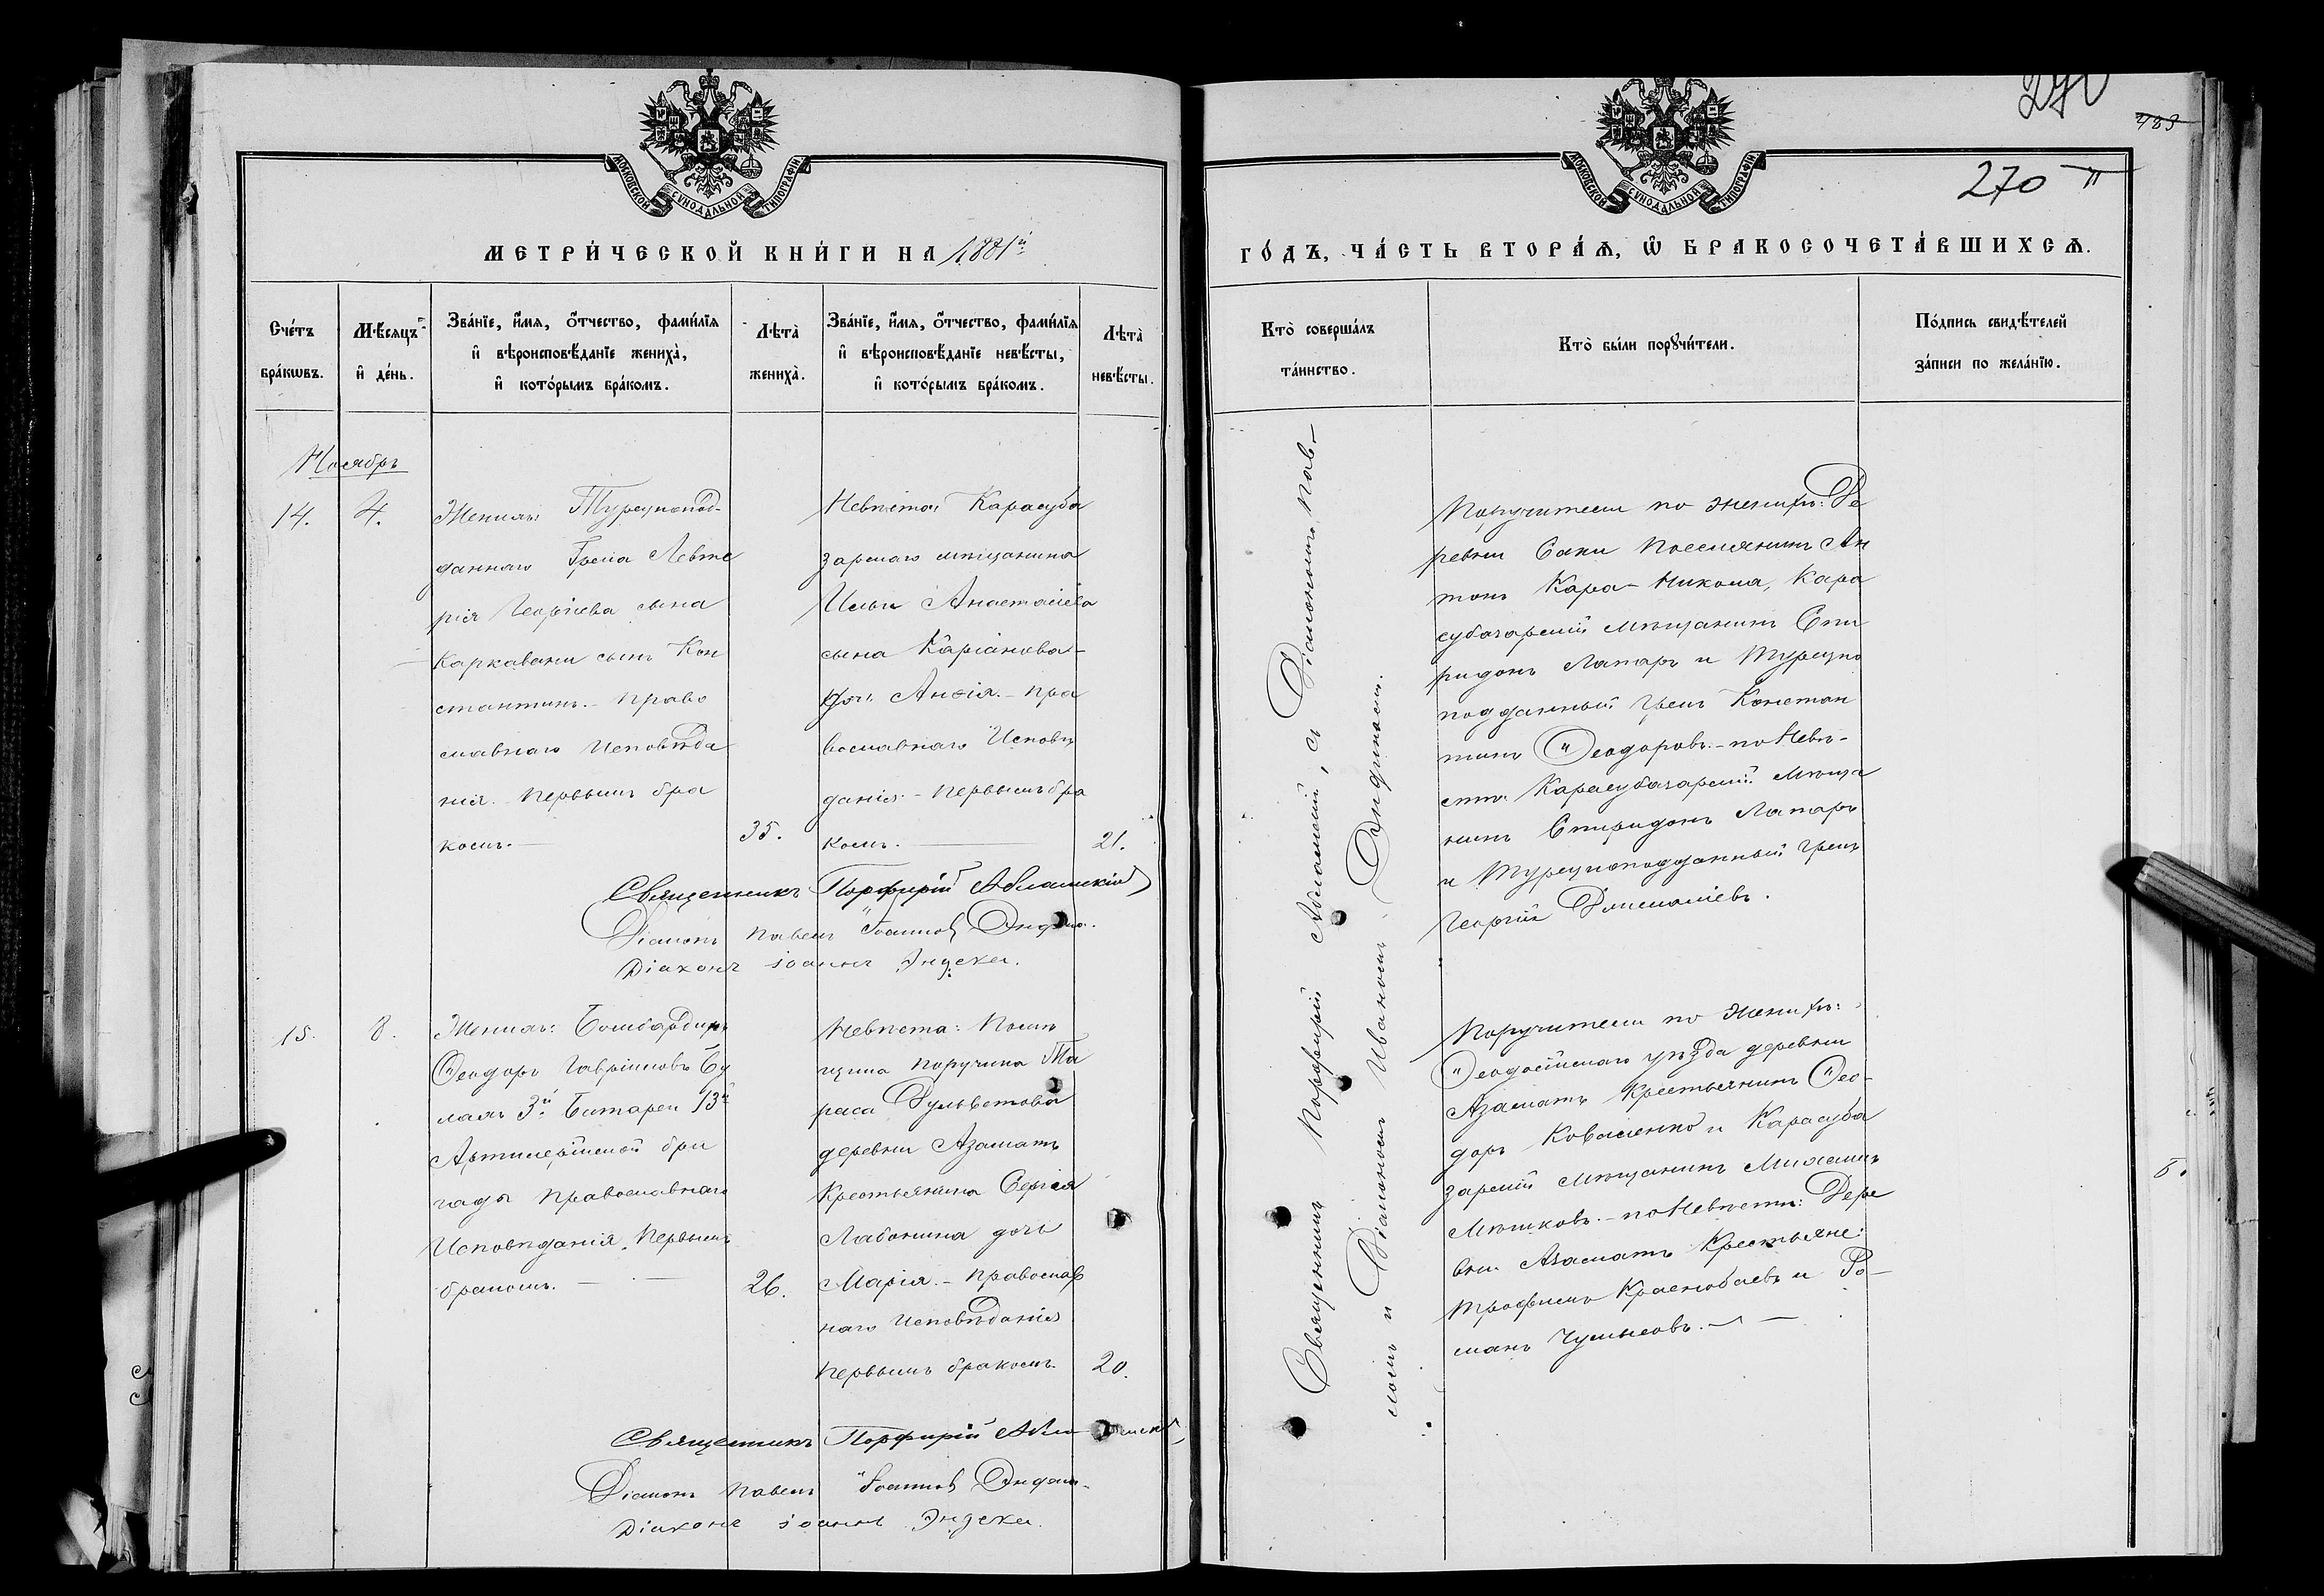 МОСКОВСКОЙ СУНОДАЛЬНОЙ ТИПОГРАФІИ
МЕТРИ́ЧЕСКОЙ КНИ́ГИ НА 1881й
Сче́тъ бра́кωвъ.
Мѣ́сяцъ и҆ де́нь.
Зва́нїе, и҆́мя, ѻ҆́тчество, фами́лїя и҆ вѣроисповѣ́данїе жениха̀, и҆ кото́рымъ бра́комъ.
Лѣта̀ жениха̀.
Зва́нїе, и҆́мя, ѻ҆́тчество, фами́лїя и҆ вѣроисповѣ́данїе невѣ́сты, и҆ кото́рымъ бра́комъ.
Лѣта̀ невѣ́сты.
Ноябрь
14.
4.
Женихъ: Турецкопод-
даннаго Грека Левте
рія Георгіева сына
Каркавани сынъ Кон
стантинъ. - Право
славнаго Исповѣда
нія. - Первымъ бра
комъ. —
35.
Невѣста: Карасуба
зарскаго мѣщанина
Ильи Анастасіева
сына Каріанова -
дочь Анѳія. - Пра
вославнаго Исповѣ
данія. - Первымъ бра
комъ. —
21.
Священникъ Порфирій Абламскій
Діаконъ Павелъ Іоанновъ
Діаконъ Іоаннъ Эндека.
15.
8.
Женихъ: Бомбардиръ
Ѳеодоръ Гавріиловъ Бу
лахъ 3й Батареи 13й
Артилерійской бри
гады Православнаго
Исповѣданія, Первымъ
бракомъ. —
26.
Невѣста:
щика поручика Та
раса Дульветова
деревни Азаматъ
Крестьянина Сергія
Лабонина дочь
Марія. - Православ
наго Исповѣданія
Первымъ бракомъ.
20.
Священникъ Порфирій
Діаконъ Павелъ Іоанновъ
Діаконъ Іоаннъ Эндека.
270
483
270
МОСКОВСКОЙ СУНОДАЛЬНОЙ ТИПОГРАФІИ
ГО́ДЪ, ЧА́СТЬ ВТОРА́Я, Ѡ҆ БРАКОСОЧЕТА́ВШИХСЯ.
Кто̀ соверша́лъ та́инство.
Кто̀ бы́ли порꙋчи́тели.
По́дпись свидѣ́телей за́писи по жела́нїю.
Священникъ Порфирій Абламскій, съ Діакономъ Пав-
ломъ и Діакономъ Иваномъ Эндиками.
Поручители по женихѣ: Де
ревни Саки Поселянинъ Ан
тонъ Кара-Никола, Кара
субазарскій Мѣщанинъ Спи
ридонъ Лапаръ и Турецко
подданный Грекъ Констан
тинъ Ѳеодоровъ. - по Невѣ-
стѣ: Карасубазарскій Мѣща
нинъ Спиридонъ Лапаръ
и Турецкоподданный Грекъ
Георгій
Поручители по Женихѣ:
Ѳеодосійскаго уѣзда деревни
Азаматъ Крестьянинъ Ѳео-
доръ Коваленко и Карасуба
зарскій Мѣщанинъ Михаилъ
Мѣшковъ. - по Невѣстѣ: Дере
вни Азаматъ Крестьяне:
Трофимъ Краснобаевъ и Ро-
манъ